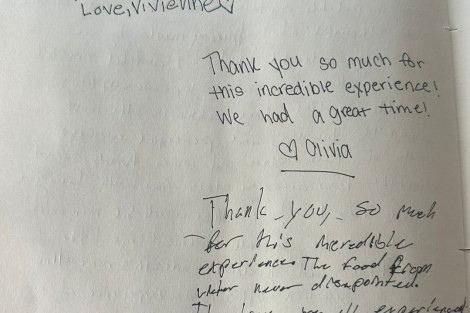 Love, Vivienne♡
Thank you so much for
this incredible experience!
We had a great time!
♡ Olivia
Thank you, so much
for this incredible
experience. The food from
never disappointed.
experienced